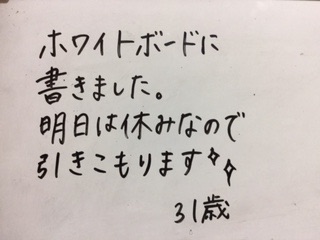 ホワイトボードに
書きました。
明日は休みなので
引きこもります✨
31歳